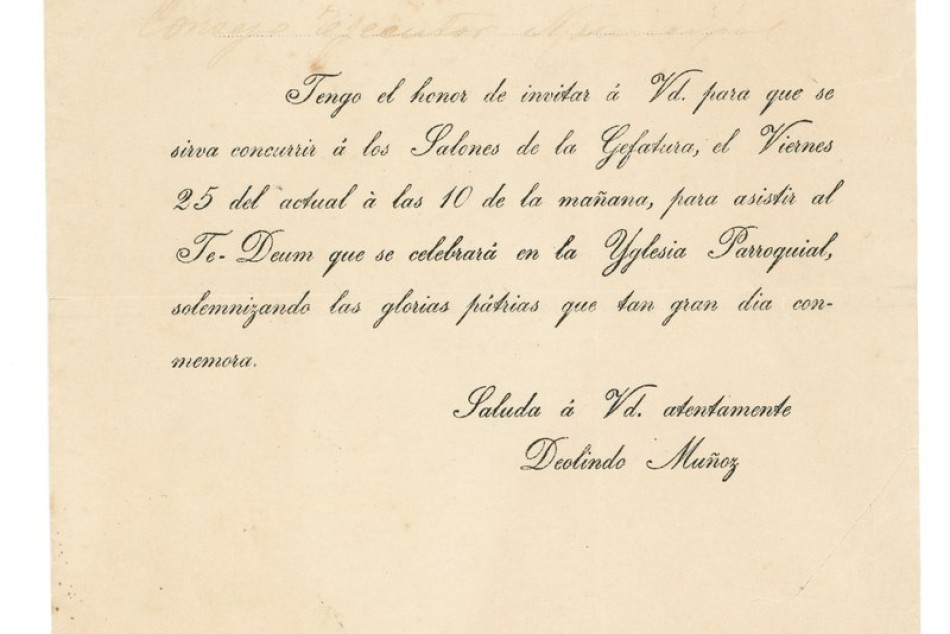 Consejo Ejecutor Municipal
Tengo el honor de invitar á Vd. para que se
sirva concurrir á los Salones de la Gefatura, el Viernes
25 del actual à las 10 de la mañana, para asistir al
Te-Deum que se celebrará en la Yglesia Parroquial,
solemnizando las glorias pátrias que tan gran dia con-
memora.
Saluda á Vd. atentamente
Deolindo Muñoz